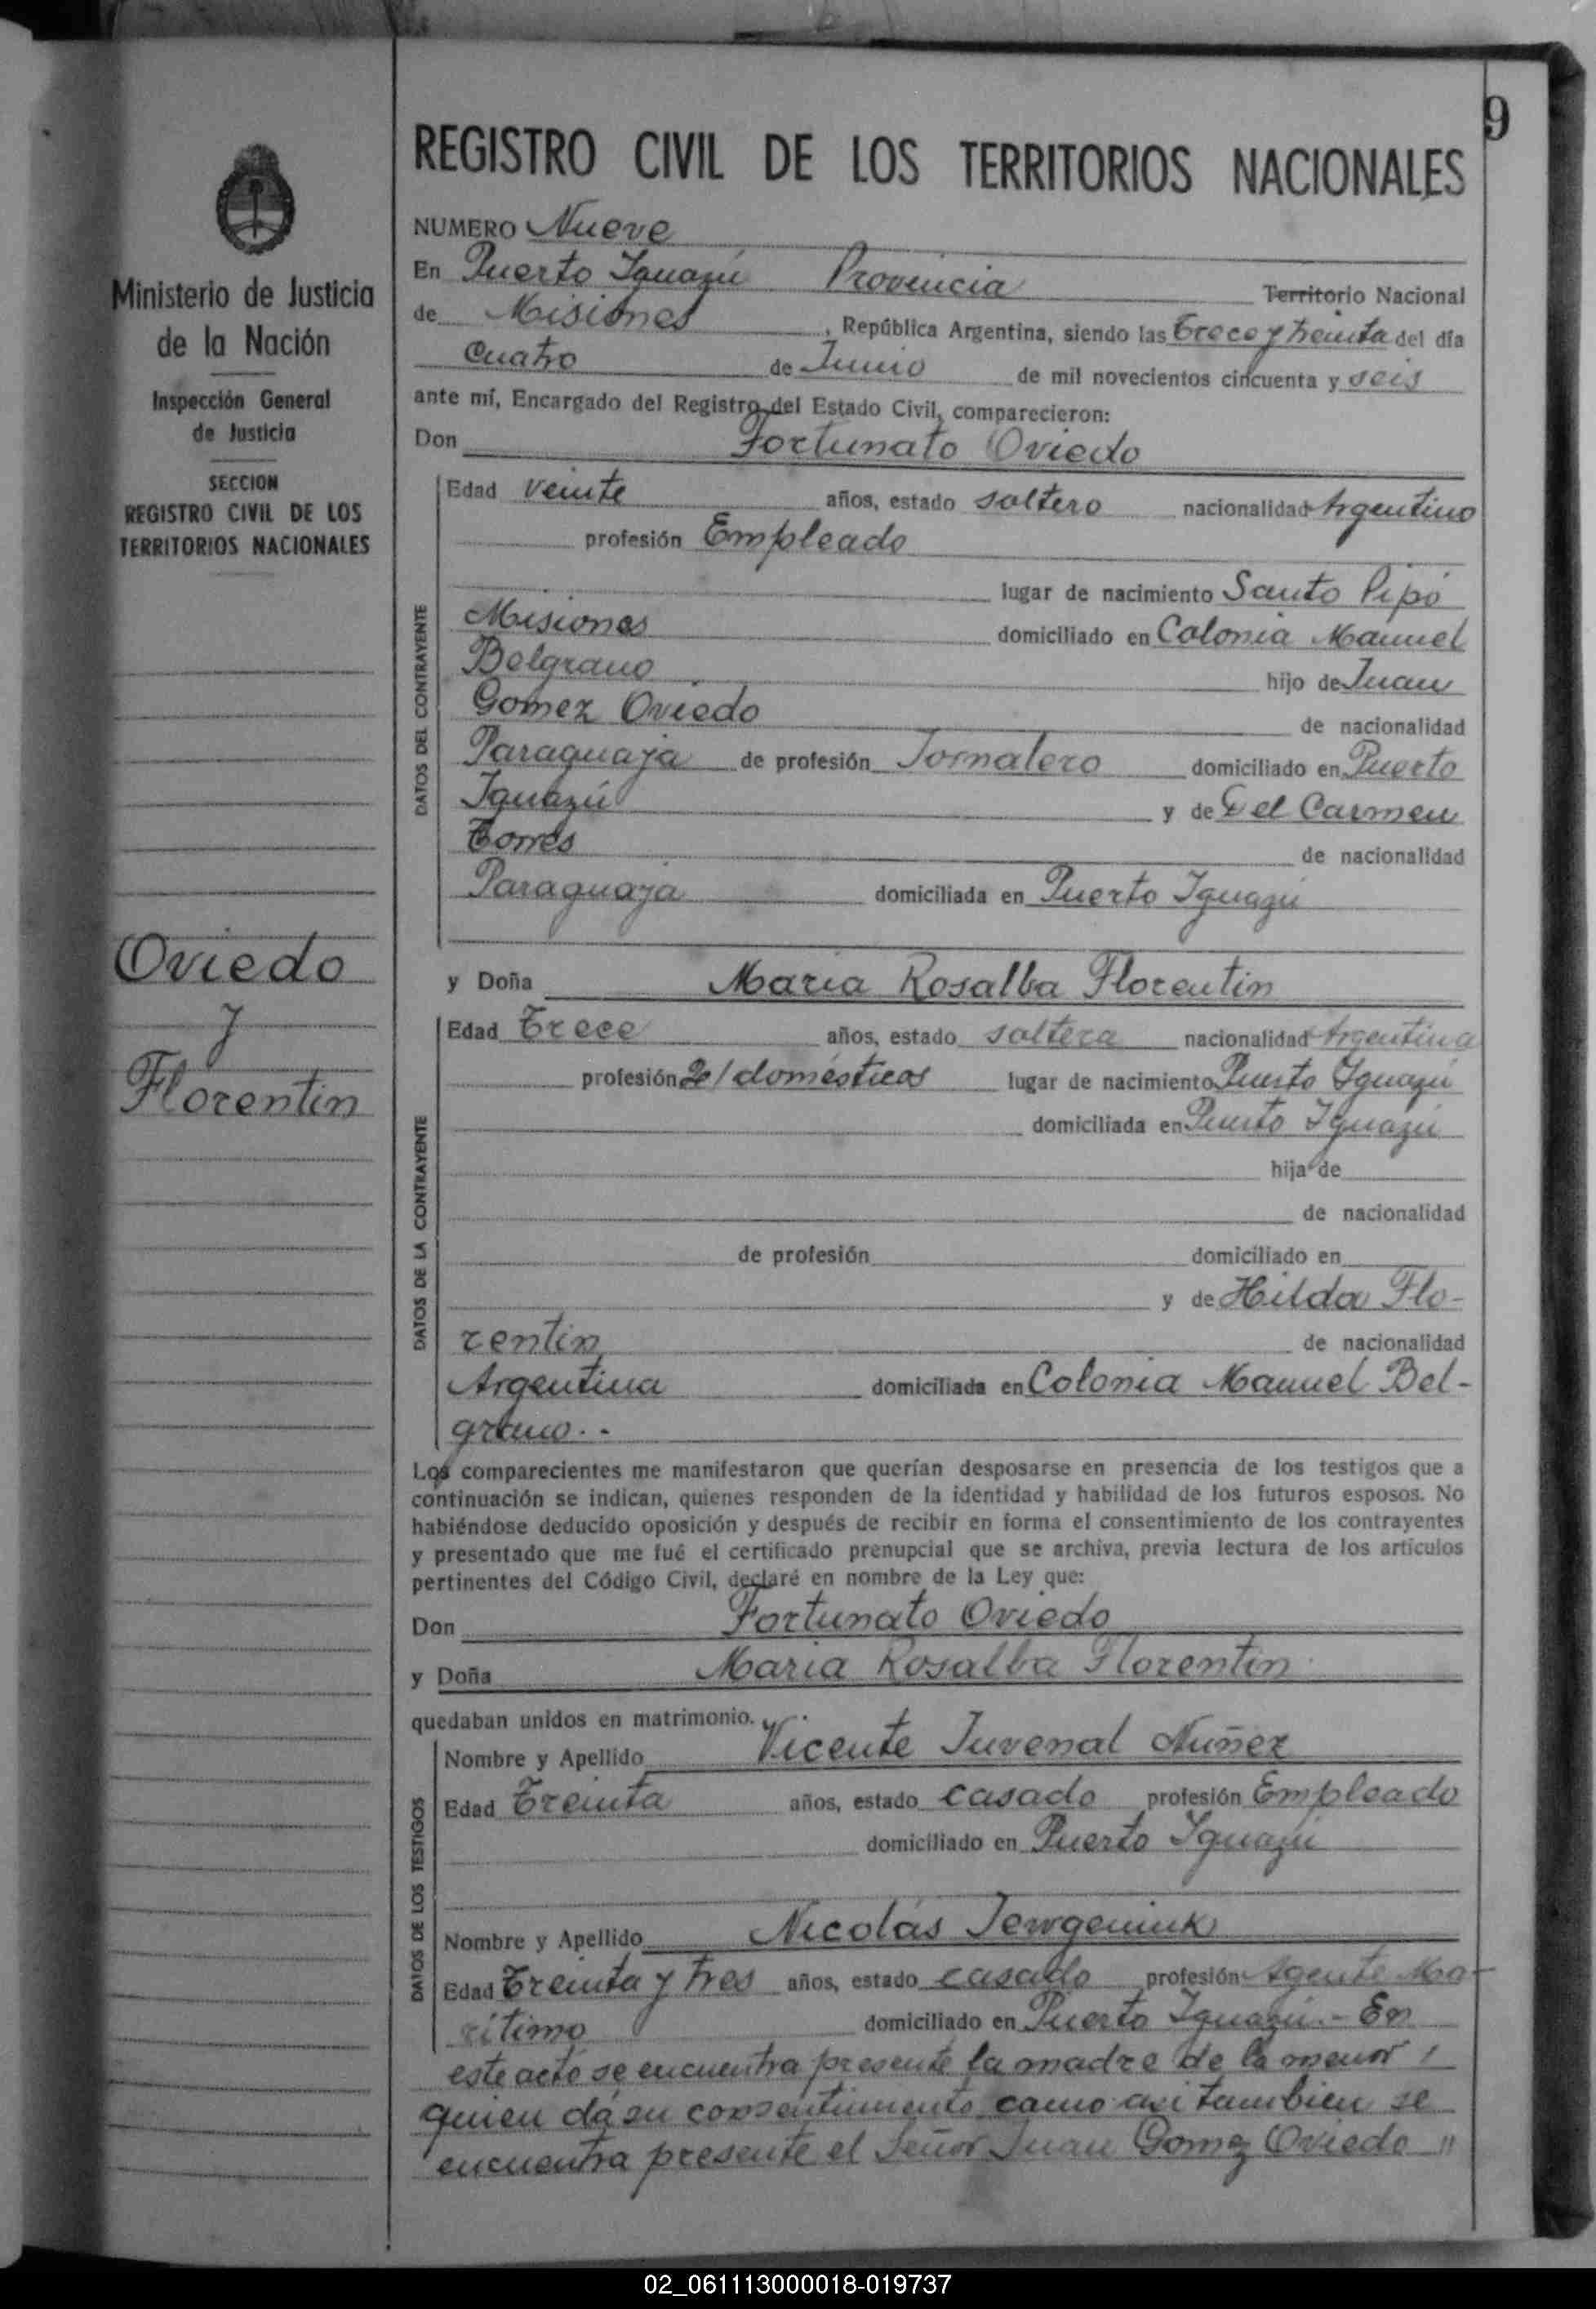 9
REGISTRO CIVIL DE LOS TERRITORIOS NACIONALES
NUMERO Nueve
En Puerto Iguazú Provincia Territorio Nacional
de Misiones, República Argentina, siendo las trece y treinta del día
cuatro de Junio de mil novecientos cincuenta y seis
ante mí, Encargado del Registro del Estado Civil, comparecieron:
Don Fortunato Oviedo
Edad veinte años, estado soltero nacionalidad Argentino
profesión Empleado
lugar de nacimiento Santo Pipó
Misiones domiciliado en Colonia Manuel
Belgrano hijo de Juan
Gomez Oviedo de nacionalidad
Paraguaja de profesión Jornalero domiciliado en Puerto
Iguazú y de Del Carmen
Torres de nacionalidad
Paraguaya domiciliada en Puerto Iguazú
DATOS DEL CONTRAYENTE
y Doña Maria Rosalba Florentin
Edad Trece años, estado soltera nacionalidad Argentina
profesión Q/domésticos lugar de nacimiento Puerto Iguazú
domiciliada en Puerto Iguazú
hija de
de nacionalidad
de profesión domiciliado en
y de Hilda Flo-
rentin de nacionalidad
Argentina domiciliada en Colonia Manuel Bel-
grano.-
DATOS DE LA CONTRAYENTE
Los comparecientes me manifestaron que querían desposarse en presencia de los testigos que a
continuación se indican, quienes responden de la identidad y habilidad de los futuros esposos. No
habiéndose deducido oposición y después de recibir en forma el consentimiento de los contrayentes
y presentado que me fué el certificado prenupcial que se archiva, previa lectura de los artículos
pertinentes del Código Civil, declaré en nombre de la Ley que:
Don Fortunato Oviedo
y Doña Maria Rosalba Florentin
quedaban unidos en matrimonio.
Nombre y Apellido Vicente Juvenal Nuñez
Edad Treinta años, estado casado profesión Empleado
domiciliado en Puerto Iguazú
Nombre y Apellido Nicolás Jewgeniuk
Edad Treinta y tres años, estado casado profesión Agente Ma-
ritimo domiciliado en Puerto Iguazú.- En
DATOS DE LOS TESTIGOS
este acto se encuentra presente la madre de la menor,
quien dá su consentimiento como asi tambien se
encuentra presente el Señor Juan Gomez Oviedo "
Ministerio de Justicia
de la Nación
Inspección General
de Justicia
SECCION
REGISTRO CIVIL DE LOS
TERRITORIOS NACIONALES
Oviedo
y
Florentin
02_061113000018-019737